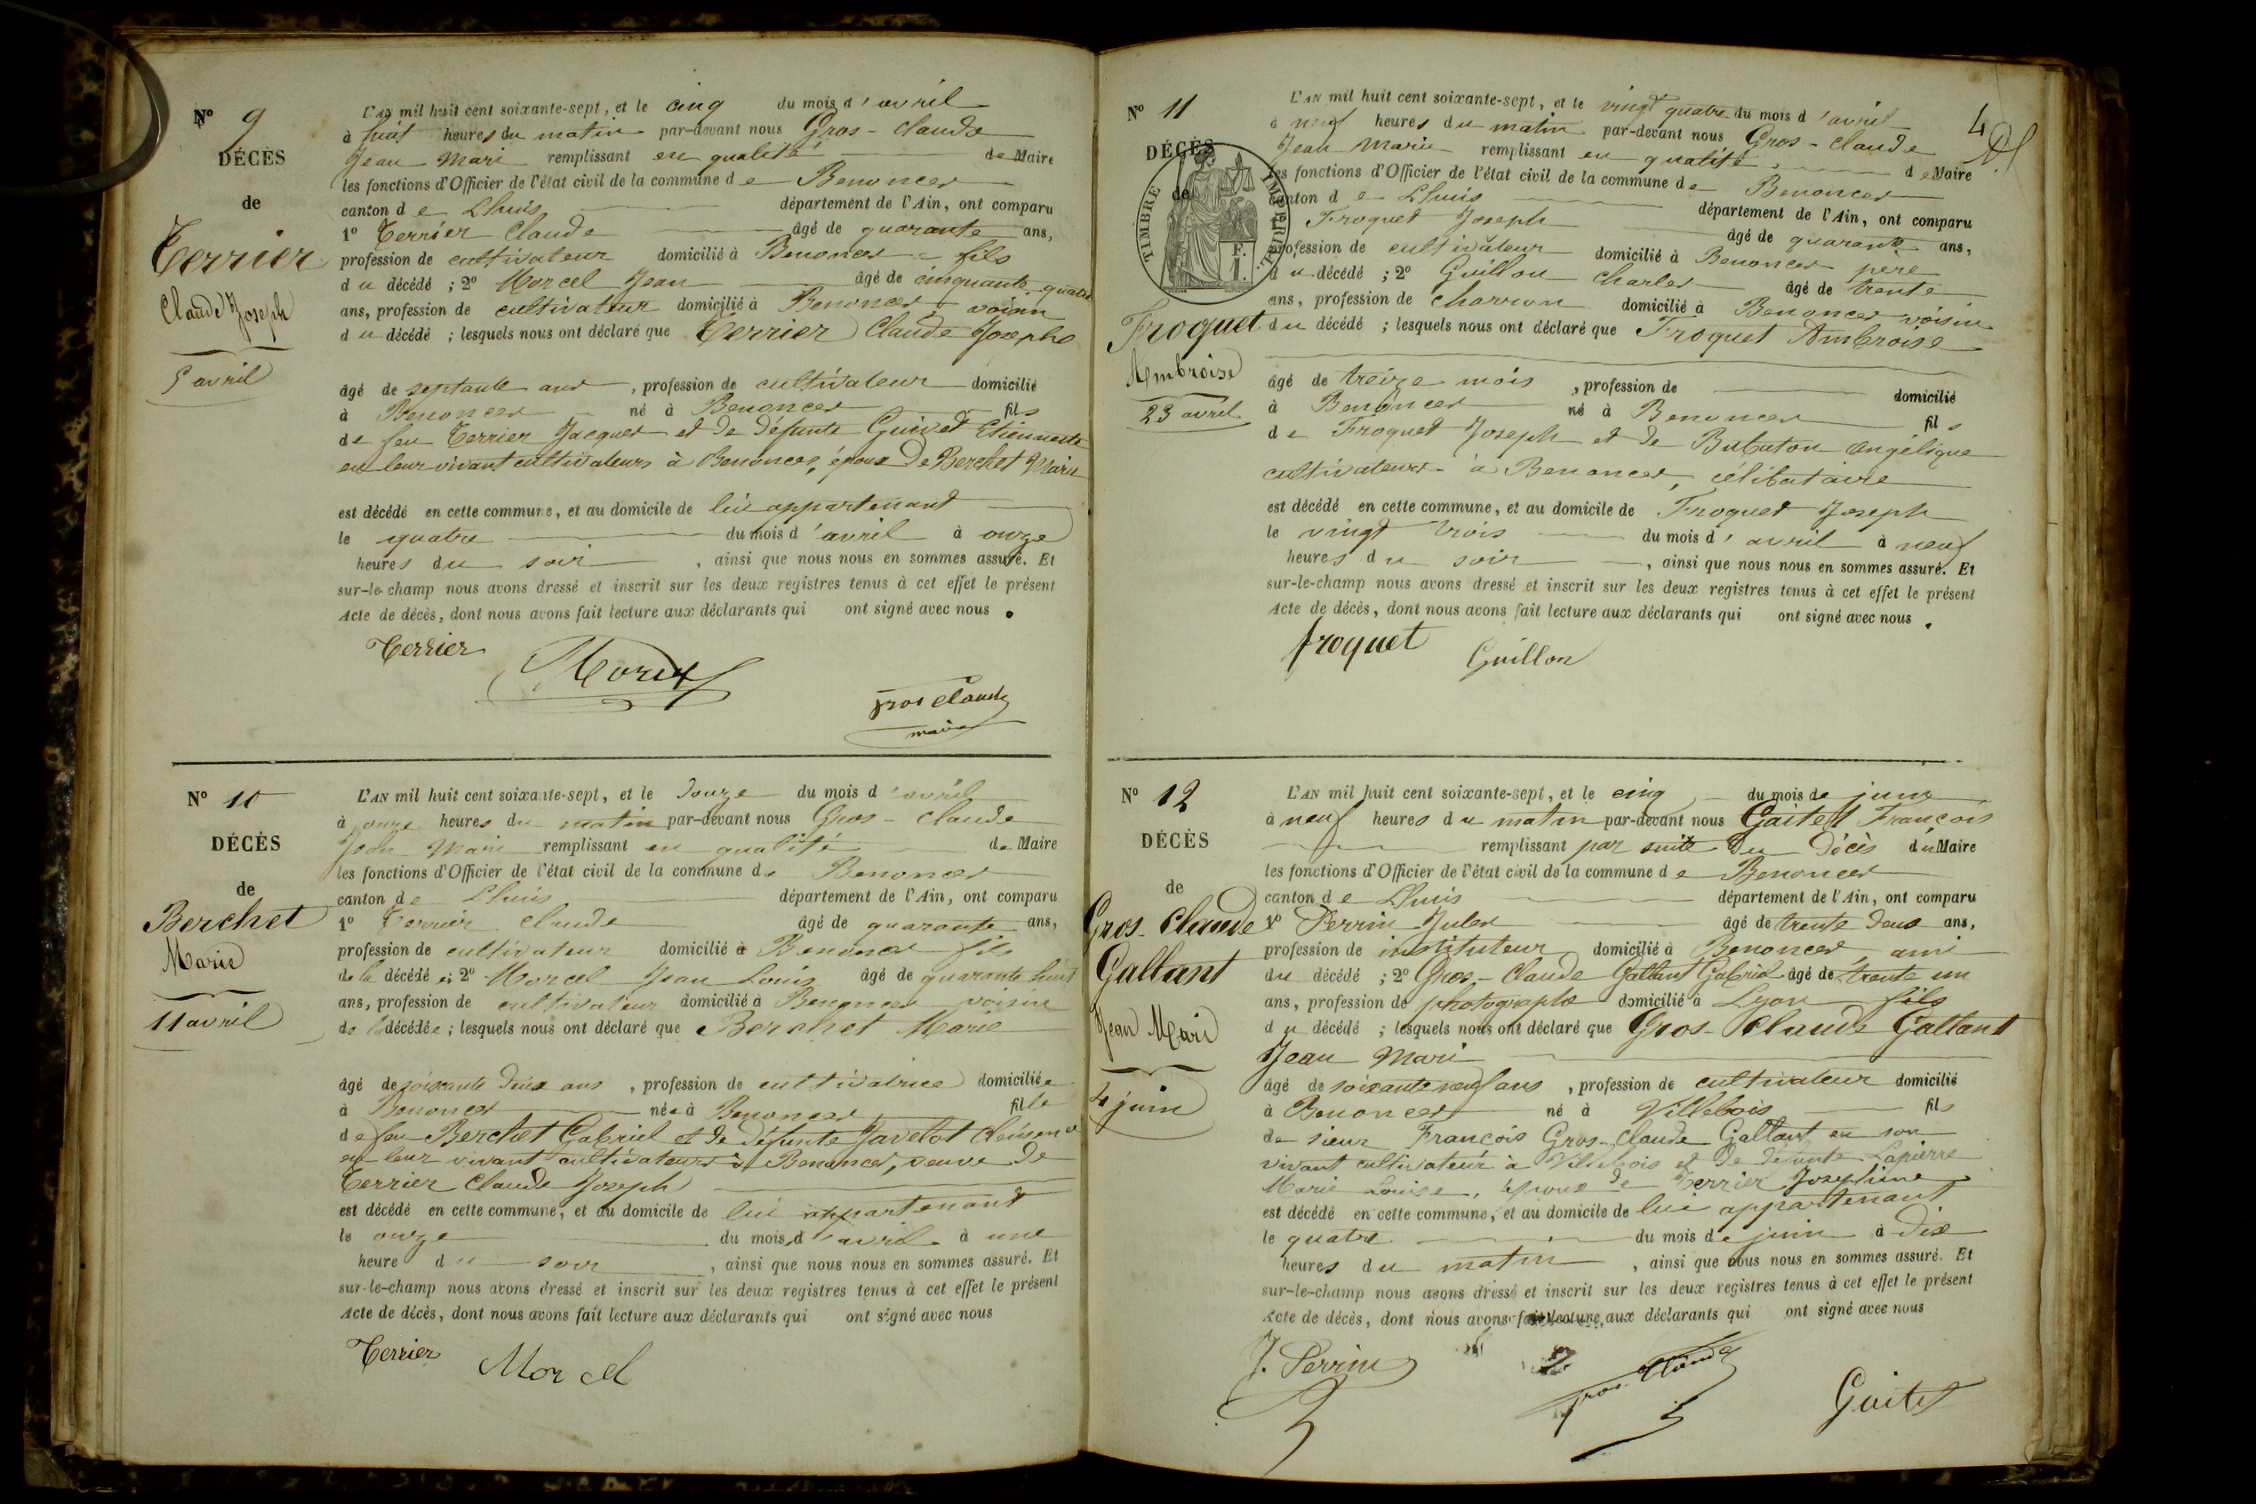 N° 9
DÉCÈS
de
Terrier
Claude Joseph
5 avril
L'AN mil huit cent soixante-sept, et le cinq du mois d'avril
à huit heures du matin par-devant nous Gros-Claude
Jean Mari remplissant en qualité de Maire
les fonctions d'Officier de l'état civil de la commune de Benonces
canton de Lhuis département de l'Ain, ont comparu
1° Terrier Claude âgé de quarante ans,
profession de cultivateur domicilié à Benonces fils
du décédé ; 2° Morcel Jean âgé de cinquante quatre
ans, profession de cultivateur domicilié à Benonces voisin
du décédé ; lesquels nous ont déclaré que Terrier Claude Josephe
âgé de septante ans, profession de cultivateur domicilié
à Benonces né à Benonces fils
de feu Terrier Jacques et de défunte Guivet Etiennette
en leur vivant cultivateurs à Benonces, époux de Berchet Marie
est décédé en cette commune, et au domicile de lui appartenant
le quatre du mois d'avril à onze
heures du soir, ainsi que nous nous en sommes assuré. Et
sur-le-champ nous avons dressé et inscrit sur les deux registres tenus à cet effet le présent
Acte de décès, dont nous avons fait lecture aux déclarants qui ont signé avec nous.
Terrier
Morcel
gros claude
maire
N° 10
DÉCÈS
de
Berchet
Marie
11 avril
L'AN mil huit cent soixante-sept, et le douze du mois d'avril
à onze heures du matin par-devant nous Gros-Claude
Jean Mari remplissant en qualité de Maire
les fonctions d'Officier de l'état civil de la commune de Benonces
canton de Lhuis département de l'Ain, ont comparu
1° Terrier Claude âgé de quarante ans,
profession de cultivateur domicilié à Benonces fils
de la décédée ; 2° Morcel Jean Louis âgé de quarante huit
ans, profession de cultivateur domicilié à Benonces voisin
de la décédée ; lesquels nous ont déclaré que Berchet Marie
âgé de soixante deux ans, profession de cultivatrice domiciliée
à Benonces née à Benonces fille
de feu Berchet Gabriel et de défunte Javelot
en leur vivant cultivateurs à Benonces, veuve de
Terrier Claude Joseph
est décédé en cette commune, et au domicile de lui appartenant
le onze du mois d'avril à une
heure du soir, ainsi que nous nous en sommes assuré. Et
sur-le-champ nous avons dressé et inscrit sur les deux registres tenus à cet effet le présent
Acte de décès, dont nous avons fait lecture aux déclarants qui ont signé avec nous
Terrier
Morcel
4
N° 11
DÉCÈS
de
TIMBRE IMPÉRIAL
1 F.
Froquet
Ambroise
23 avril
L'AN mil huit cent soixante-sept, et le vingt quatre du mois d'avril
à neuf heures du matin par-devant nous Gros-Claude
Jean Marie remplissant en qualité de Maire
les fonctions d'Officier de l'état civil de la commune de Benonces
canton de Lhuis département de l'Ain, ont comparu
1° Froquet Joseph âgé de quarante ans,
profession de cultivateur domicilié à Benonces père
du décédé ; 2° Guillon Charles âgé de trente
ans, profession de charron domicilié à Benonces voisin
du décédé ; lesquels nous ont déclaré que Froquet Ambroise
âgé de treize mois, profession de domicilié
à Benonces né à Benonces fils
de Froquet Joseph et de Bubaton Angélique
cultivateurs à Benonces, célibataire
est décédé en cette commune, et au domicile de Froquet Joseph
le vingt trois du mois d'avril à neuf
heures du soir, ainsi que nous nous en sommes assuré. Et
sur-le-champ nous avons dressé et inscrit sur les deux registres tenus à cet effet le présent
Acte de décès, dont nous avons fait lecture aux déclarants qui ont signé avec nous.
froquet
Guillon
N° 12
DÉCÈS
de
Gros-Claude
Gallant
Jean Mari
4 juin
L'AN mil huit cent soixante-sept, et le cinq du mois de juin
à neuf heures du matin par-devant nous Gaitet François
remplissant par suite du décès du Maire
les fonctions d'Officier de l'état civil de la commune de Benonces
canton de Lhuis département de l'Ain, ont comparu
1° Perrin Jules âgé de trente deux ans,
profession de instituteur domicilié à Benonces ami
du décédé ; 2° Gros-Claude Gallant Gabriel âgé de trente un
ans, profession de photographe domicilié à Lyon fils
du décédé ; lesquels nous ont déclaré que Gros-Claude Gallant
Jean Mari
âgé de soixante neuf ans, profession de cultivateur domicilié
à Benonces né à Villebois fils
de sieur François Gros-Claude Gallant en son
vivant cultivateur à Villebois et de défunte Lapierre
Marie Louise, époux de Terrier Josephine
est décédé en cette commune, et au domicile de lui appartenant
le quatre du mois de juin à dix
heures du matin, ainsi que nous nous en sommes assuré. Et
sur-le-champ nous avons dressé et inscrit sur les deux registres tenus à cet effet le présent
Acte de décès, dont nous avons fait lecture aux déclarants qui ont signé avec nous
J. Perrin
gros Claude
Gaitet